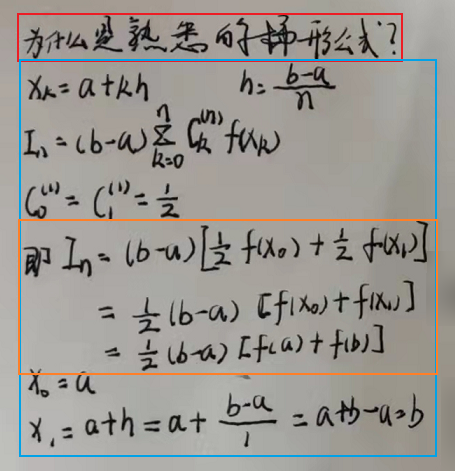 为什么是熟悉的梯形公式?
xₖ = a+kh h = (b-a)/n
Iₙ = (b-a) ∑ₖ₌₀ⁿ Cₖ⁽ⁿ⁾ f(xₖ)
C₀⁽¹⁾ = C₁⁽¹⁾ = 1/2
即 Iₙ = (b-a) [1/2 f(x₀) + 1/2 f(x₁)]
= 1/2 (b-a) [f(x₀) + f(x₁)]
= 1/2 (b-a) [f(a) + f(b)]
x₀ = a
x₁ = a+h = a + (b-a)/1 = a+b-a=b